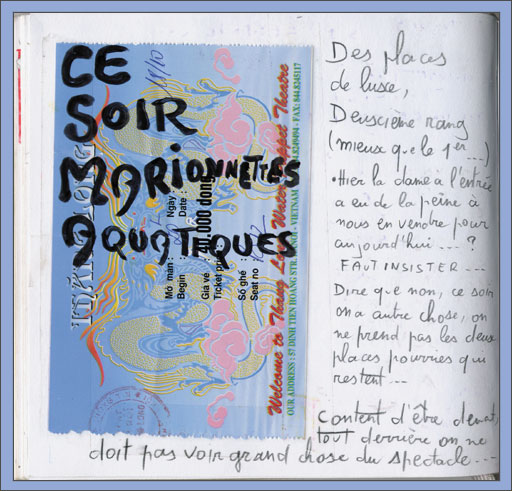 CE
SOIR
MARIONNETTES
AQUATIQUES
19/10
THĂNG LONG
Mở màn :
Begin :
Ngày :
Date :
Giá vé :
Ticket pr
.000 dong
Số ghế :
Seat no :
Welcome to Thang Long Water Puppet Theatre
OUR ADDRESS : 57 DINH TIEN HOANG STR. HANOI - VIETNAM
- FAX: 844.8245117
Des places
de luxe,
Deuxième rang
(mieux que le 1er
...)
• Hier la dame à l'entrée
a eu de la peine à
nous en vendre pour
aujourd'hui .... ?
FAUT INSISTER ...
Dire que non, ce soir
on a autre chose, on
ne prend pas les deux
places pourries qui
restent ...
Content d'être devant,
tout derrière on ne
doit pas voir grand chose du spectacle....